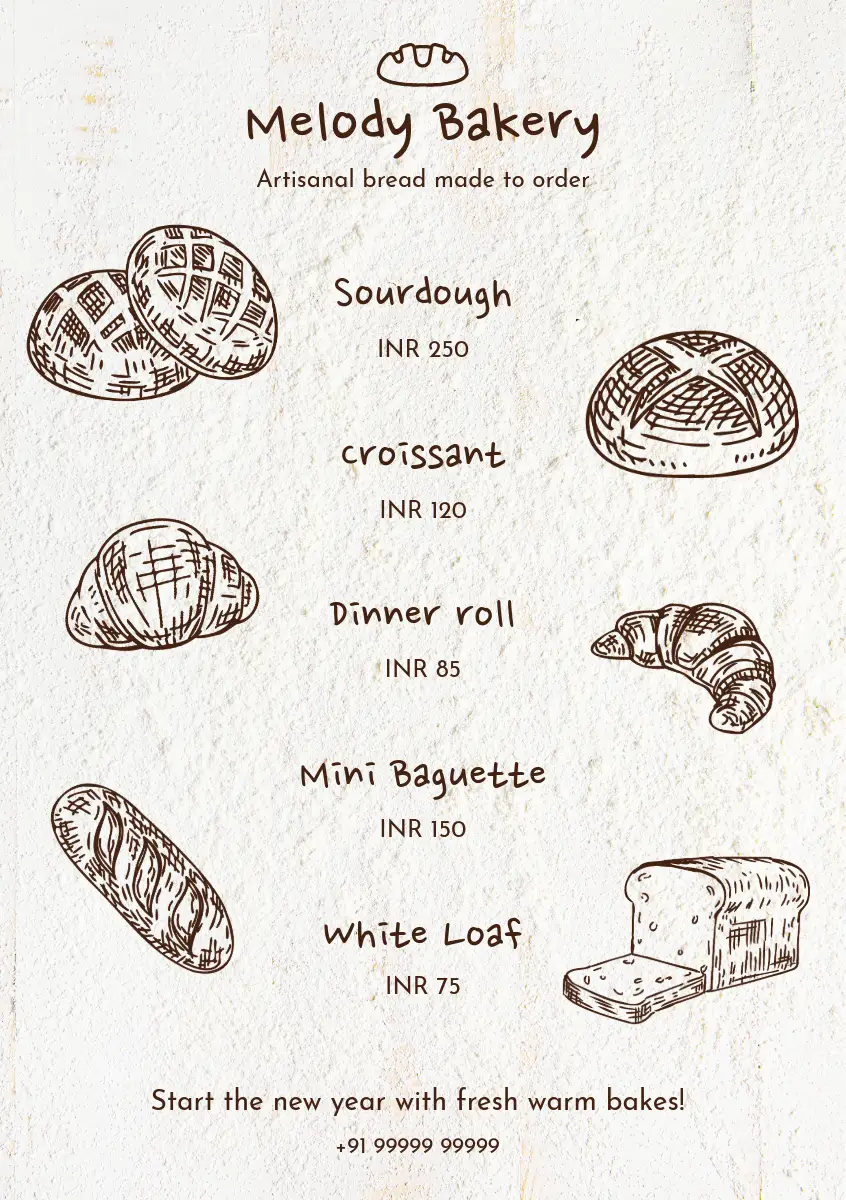 Melody Bakery
Artisanal bread made to order
Sourdough
INR 250
croissant
INR 120
Dinner roll
INR 85
Mini Baguette
INR 150
White Loaf
INR 75
Start the new year with fresh warm bakes!
+91 99999 99999